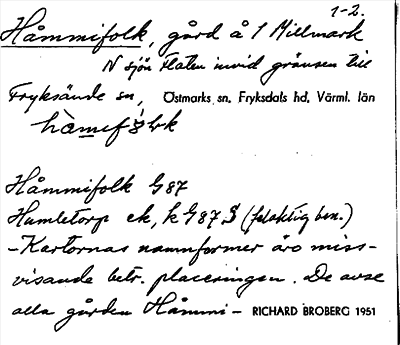 1-2.
Håmmifolk, gård å 1 Millmark
N sjön Flaten invid gränsen till
Fryksände sn, Östmarks sn. Fryksdals hd, Värml. län
Håmmifolk G87
Humletorp ek, k G87 S (felaktig ben.)
-Kartornas namnformer äro miss-
visande betr. placeringen. De avse
alla gården Håmmi- RICHARD BROBERG 1951